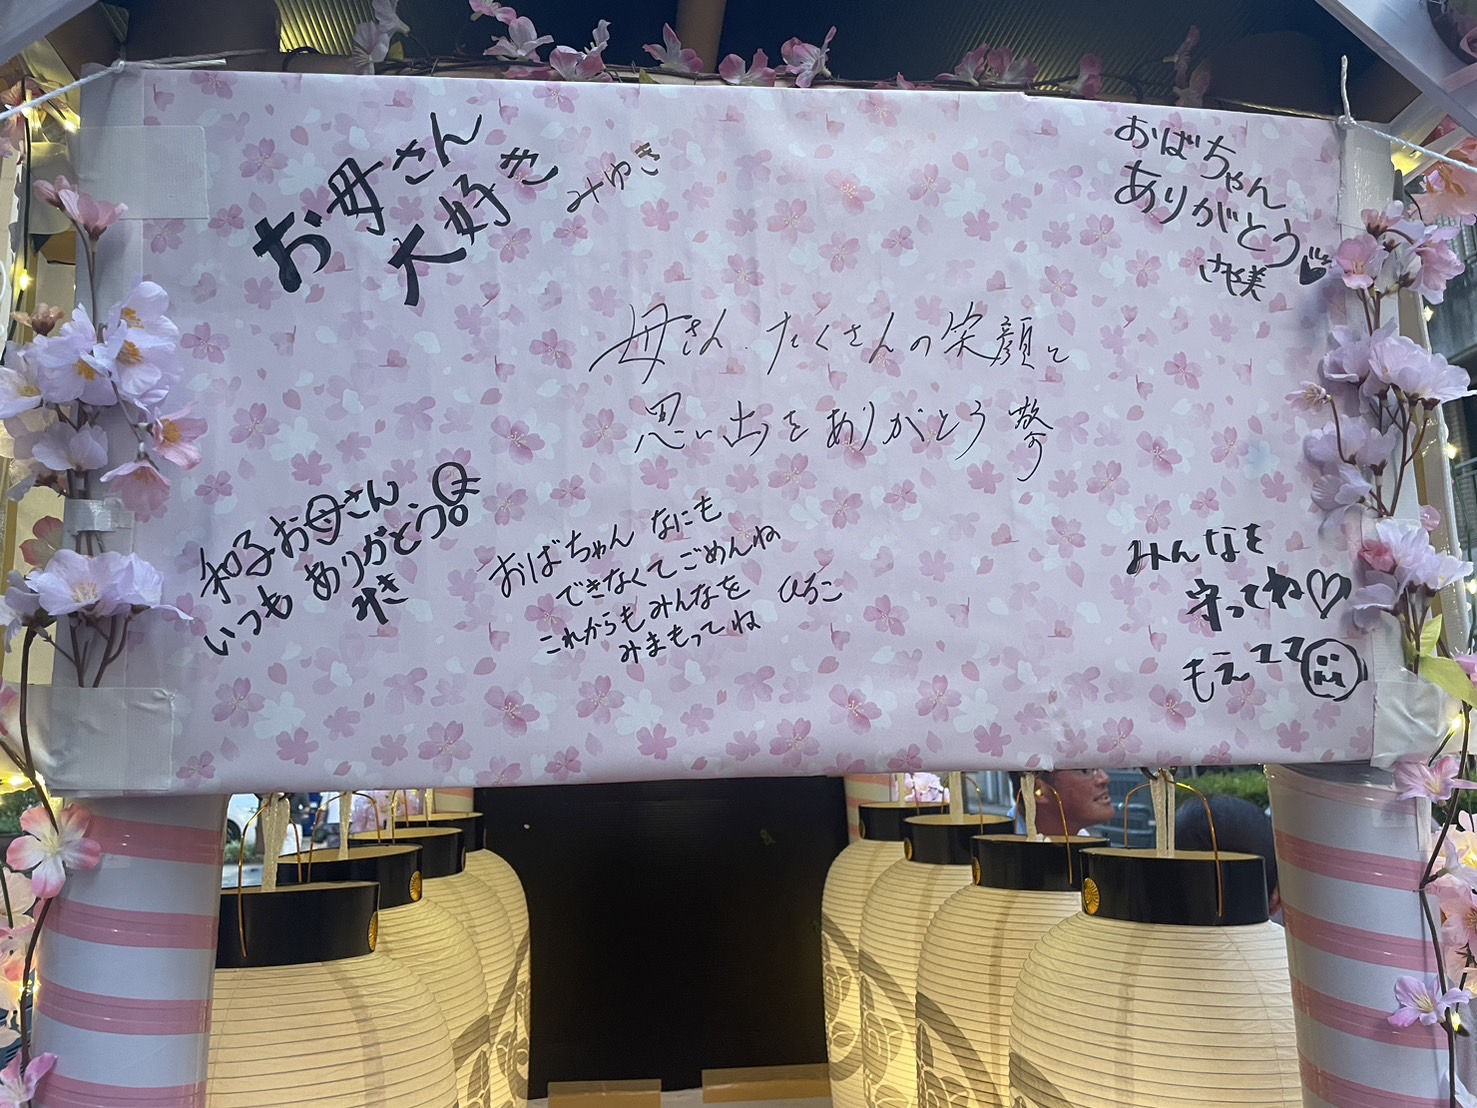 お母さん
大好き
みゆき
おばちゃん
ありがとう
母さん、たくさんの笑顔と
思い出をありがとう
和子お母さん
いつもありがとう
おばちゃん なにも
できなくてごめんね
これからもみんなを
みまもってね
ひろこ
みんなを
守ってね♡
もえココ